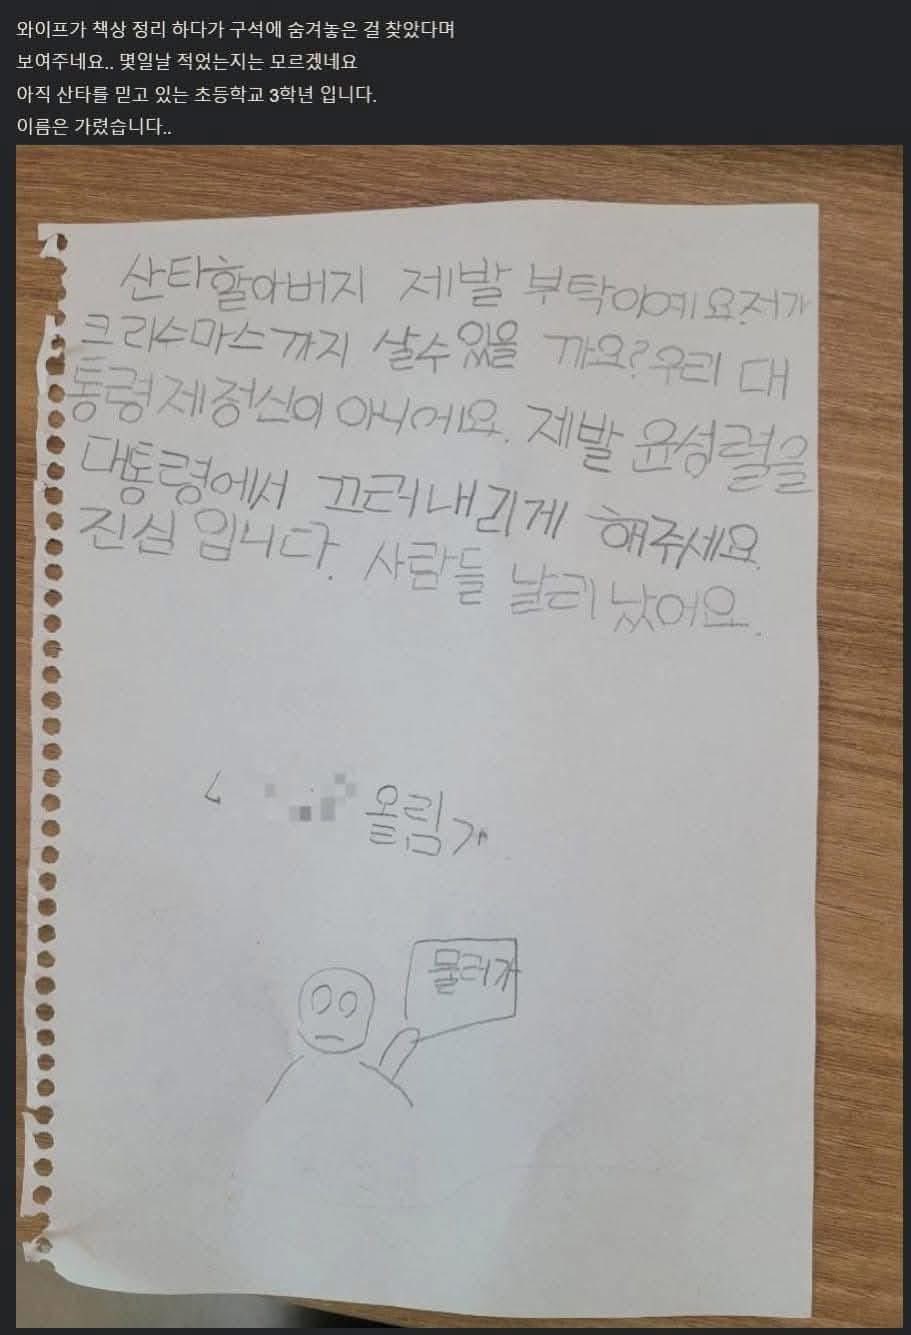 와이프가 책상 정리 하다가 구석에 숨겨놓은 걸 찾았다며
보여주네요.. 몇일날 적었는지는 모르겠네요
아직 산타를 믿고 있는 초등학교 3학년 입니다.
이름은 가렸습니다..
산타할아버지 제발 부탁이예요.저가
크리수마스까지 살수있을 까요? 우리 대
통령 제정신이 아니에요. 제발 윤성렬을
대통령에서 끄러내리게 해주세요.
진심 입니다. 사람들 날리 났어요.
올림
물러가